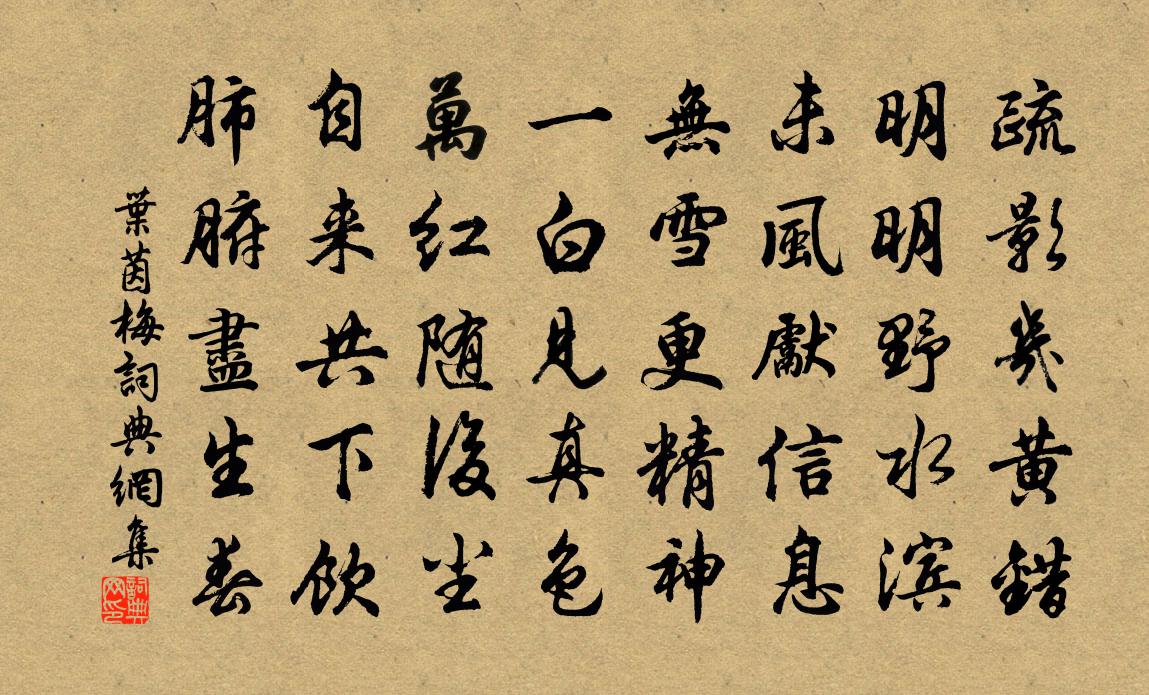 疏影幾黄錯
明明野水滨
未風獻信息
無雪更精神
一白見真色
萬红随後尘
自来共下飲
肺腑盡生春
葉茵梅詞典網集
詞典网印